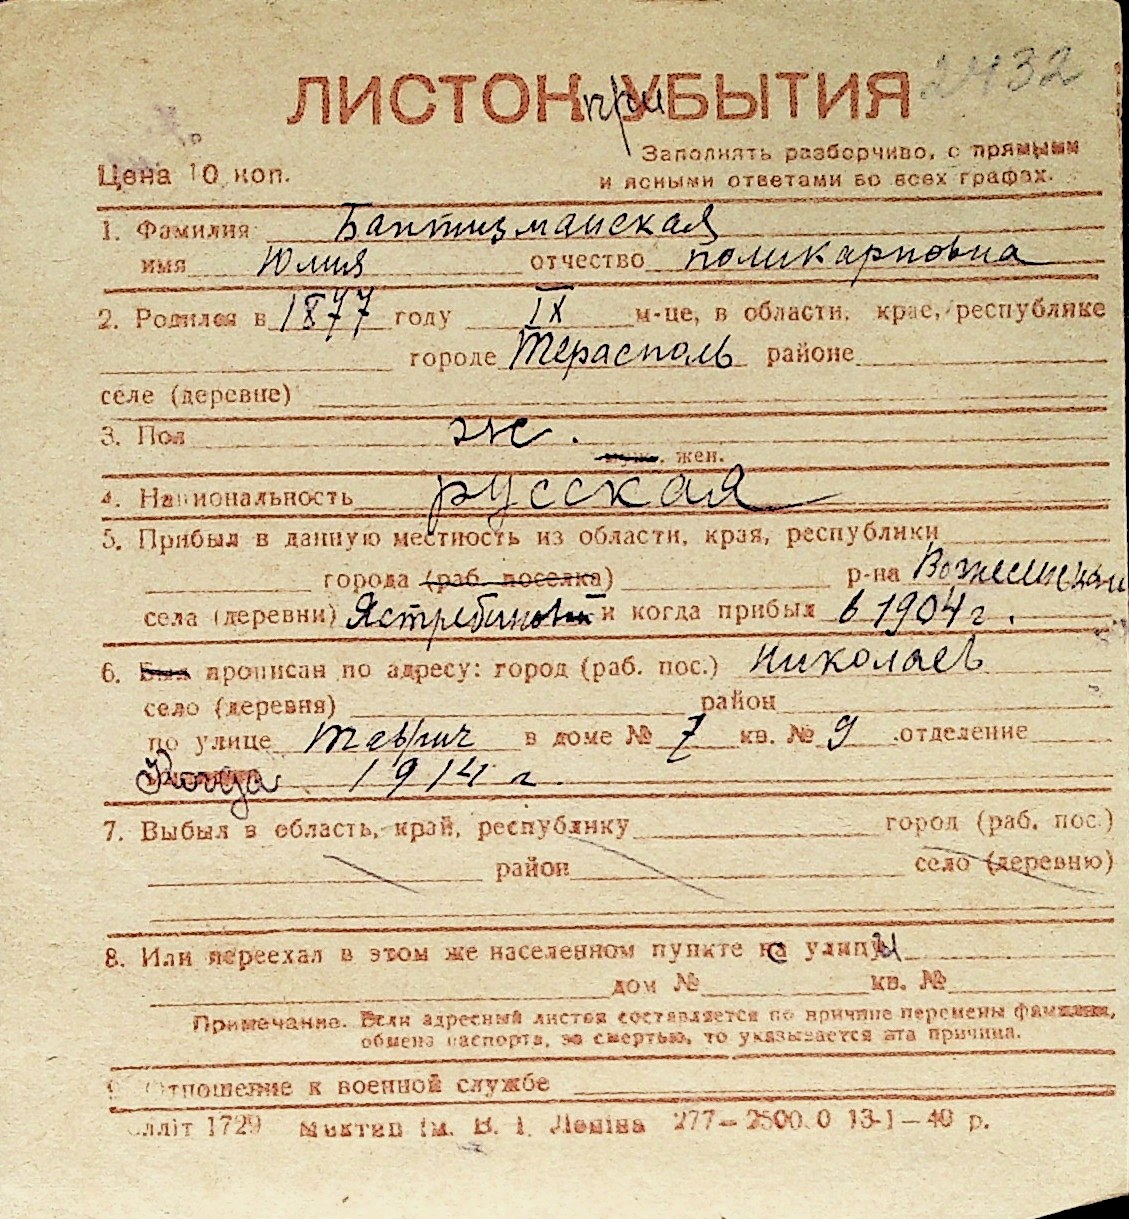 2432
ЛИСТОК при УБЫТИЯ
Заполнять разборчиво, с прямыми
Цена 10 коп. и ясными ответами во всех графах.
1. Фамилия Баптизманская
имя Юлия отчество поликарповна
2. Родился в 1877 году IX м-це, в области, крае, республике
городе Терасполь районе
селе (деревне)
3. Пол же.
муж. жен.
4. Национальность русская
5. Прибыл в данную местность из области, края, республики
города (раб. поселка) р-на
села (деревни) и когда прибыл в 1904 г.
6. Был прописан по адресу: город (раб. пос.) Николаев
село (деревня) район
по улице Таврич в доме № 7 кв. № 9 отделение
Когда 1914 г.
7. Выбыл в область, край, республику город (раб. пос.)
район село (деревню)
8. Или переехал в этом же населенном пункте с улицы
дом № кв. №
Примечание. Если адресный листок составляется по причине перемены фамилии,
обмена паспорта, за смертью, то указывается эта причина.
9. Отношение к военной службе
1729 ім. В. І. Леніна 277— 13-1—40 р.